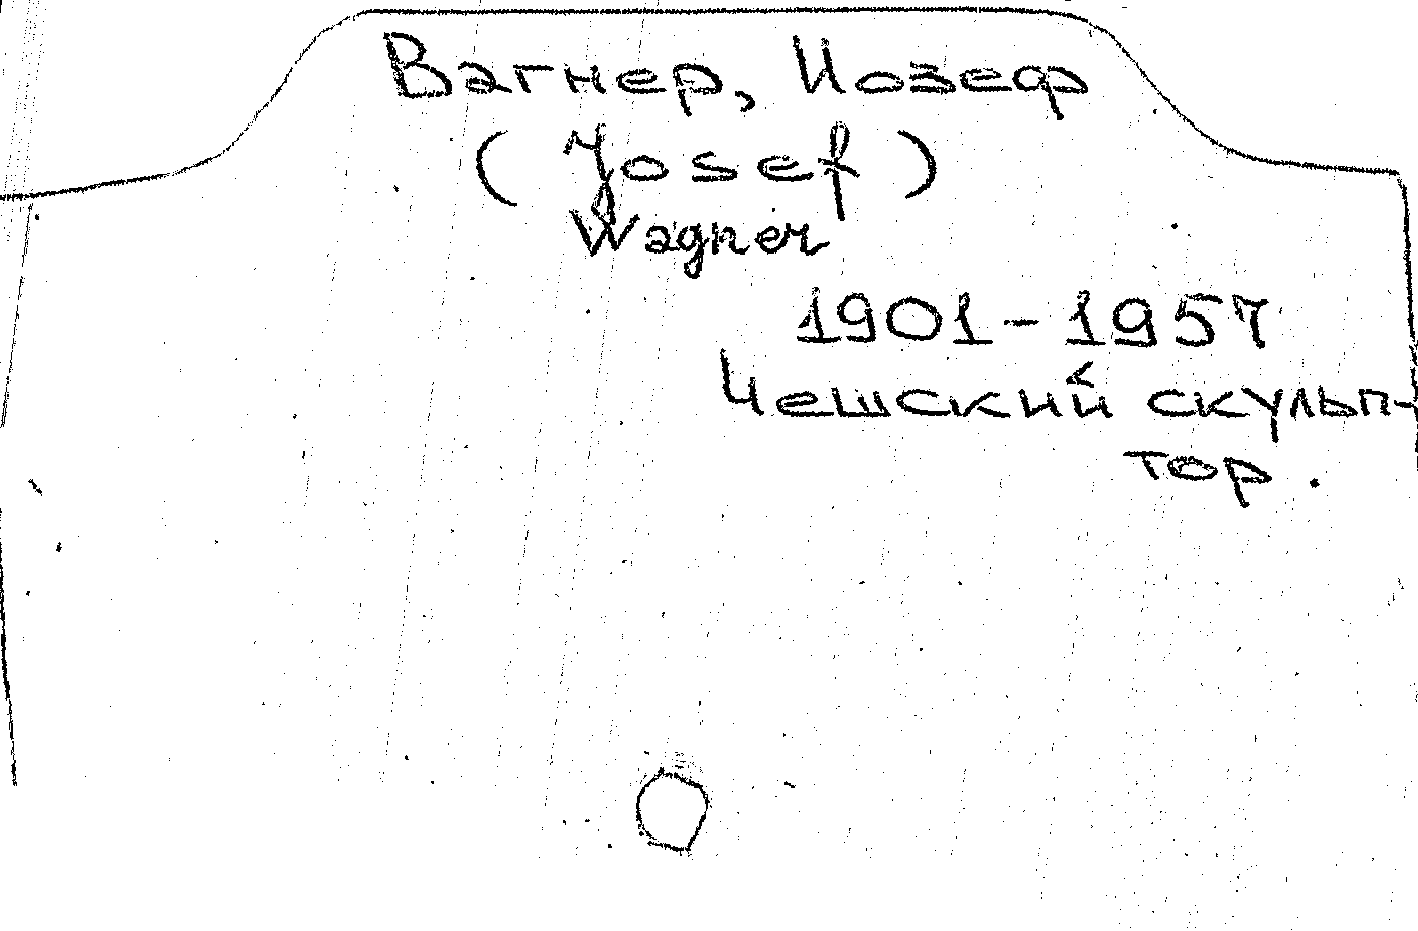 Вагнер, Иозеф
(Josef)
Wagner
1901-1957
Чешский скульп-
тор.